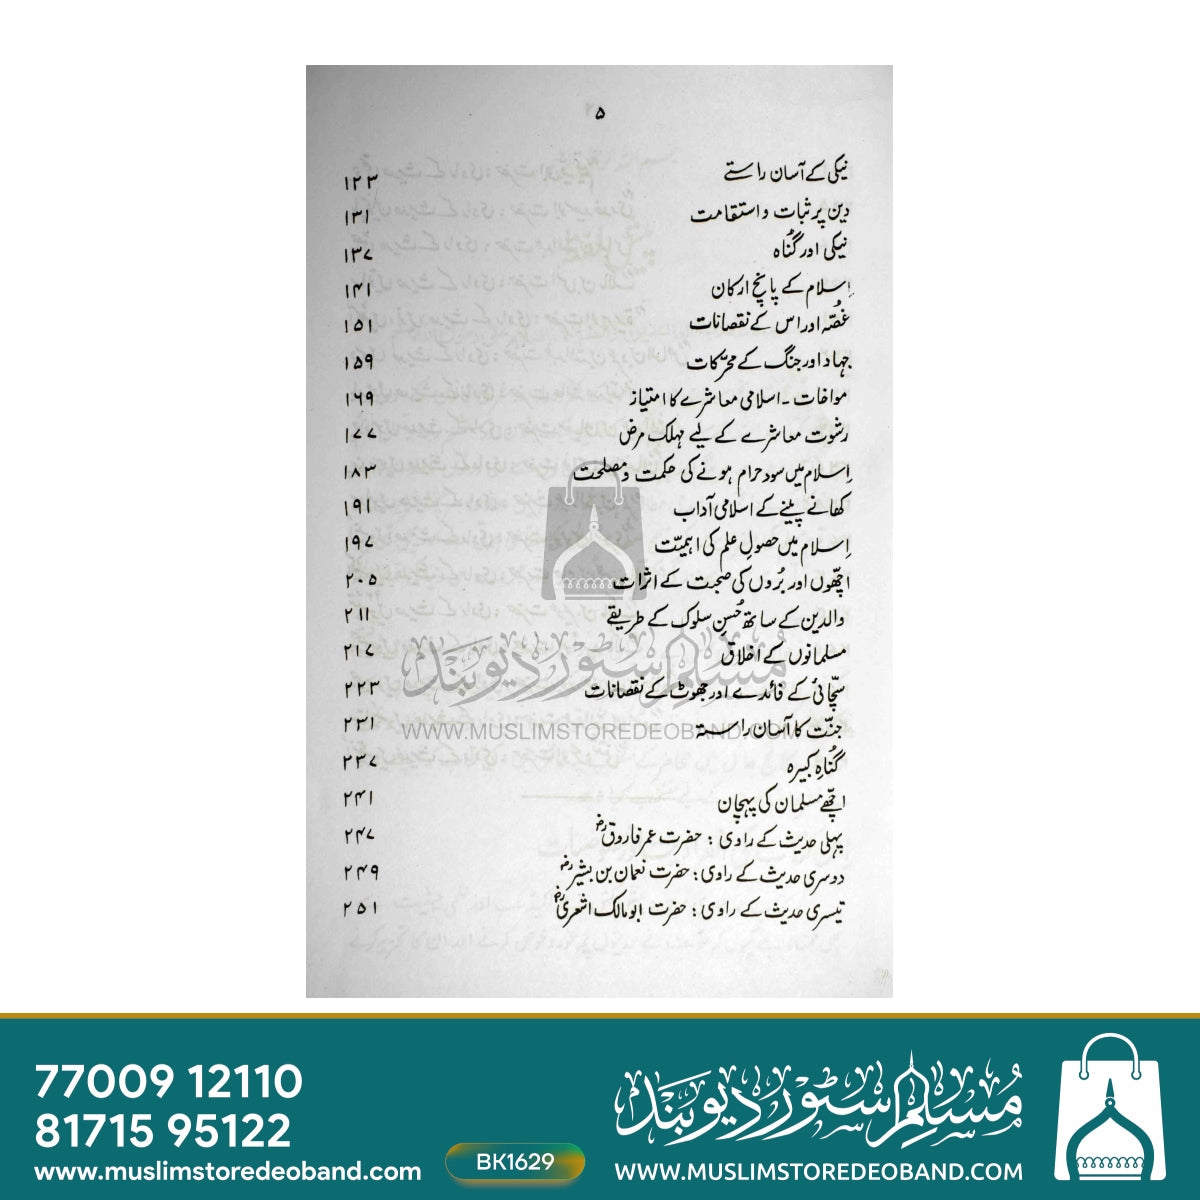 ۵
نیکی کے آسان راستے ۱۲۳
دین پر ثبات و استقامت ۱۳۱
نیکی اور گُناہ ۱۳۷
اِسلام کے پانچ ارکان ۱۴۱
غُصّہ اور اس کے نقصانات ۱۵۱
جہاد اور جنگ کے محرّکات ۱۵۹
مواخات ۔ اسلامی معاشرے کا امتیاز ۱۶۹
رشوت معاشرے کے لیے مہلک مرض ۱۷۷
اِسلام میں سود حرام ہونے کی حکمت و مصلحت ۱۸۳
کھانے پینے کے اسلامی آداب ۱۹۱
اِسلام میں حصولِ علم کی اہمیّت ۱۹۷
اچھّوں اور بُروں کی صحبت کے اثرات ۲۰۵
والدین کے ساتھ حُسنِ سلوک کے طریقے ۲۱۱
مسلمانوں کے اخلاق ۲۱۷
سچّائی کے فائدے اور جھوٹ کے نقصانات ۲۲۳
جنّت کا آسان راستہ ۲۳۱
گُناہِ کبیرہ ۲۳۷
اچھّے مسلمان کی پہچان ۲۴۱
پہلی حدیث کے راوی : حضرت عمر فاروقؓ ۲۴۷
دوسری حدیث کے راوی : حضرت نعمان بن بشیرؓ ۲۴۹
تیسری حدیث کے راوی : حضرت ابو مالک اشعریؓ ۲۵۱
مسلم سٹور دیوبند
WWW.MUSLIMSTOREDEOBAND.COM
77009 12110
81715 95122
www.muslimstoredeoband.com
BK1629
مسلم سٹور دیوبند
WWW.MUSLIMSTOREDEOBAND.COM